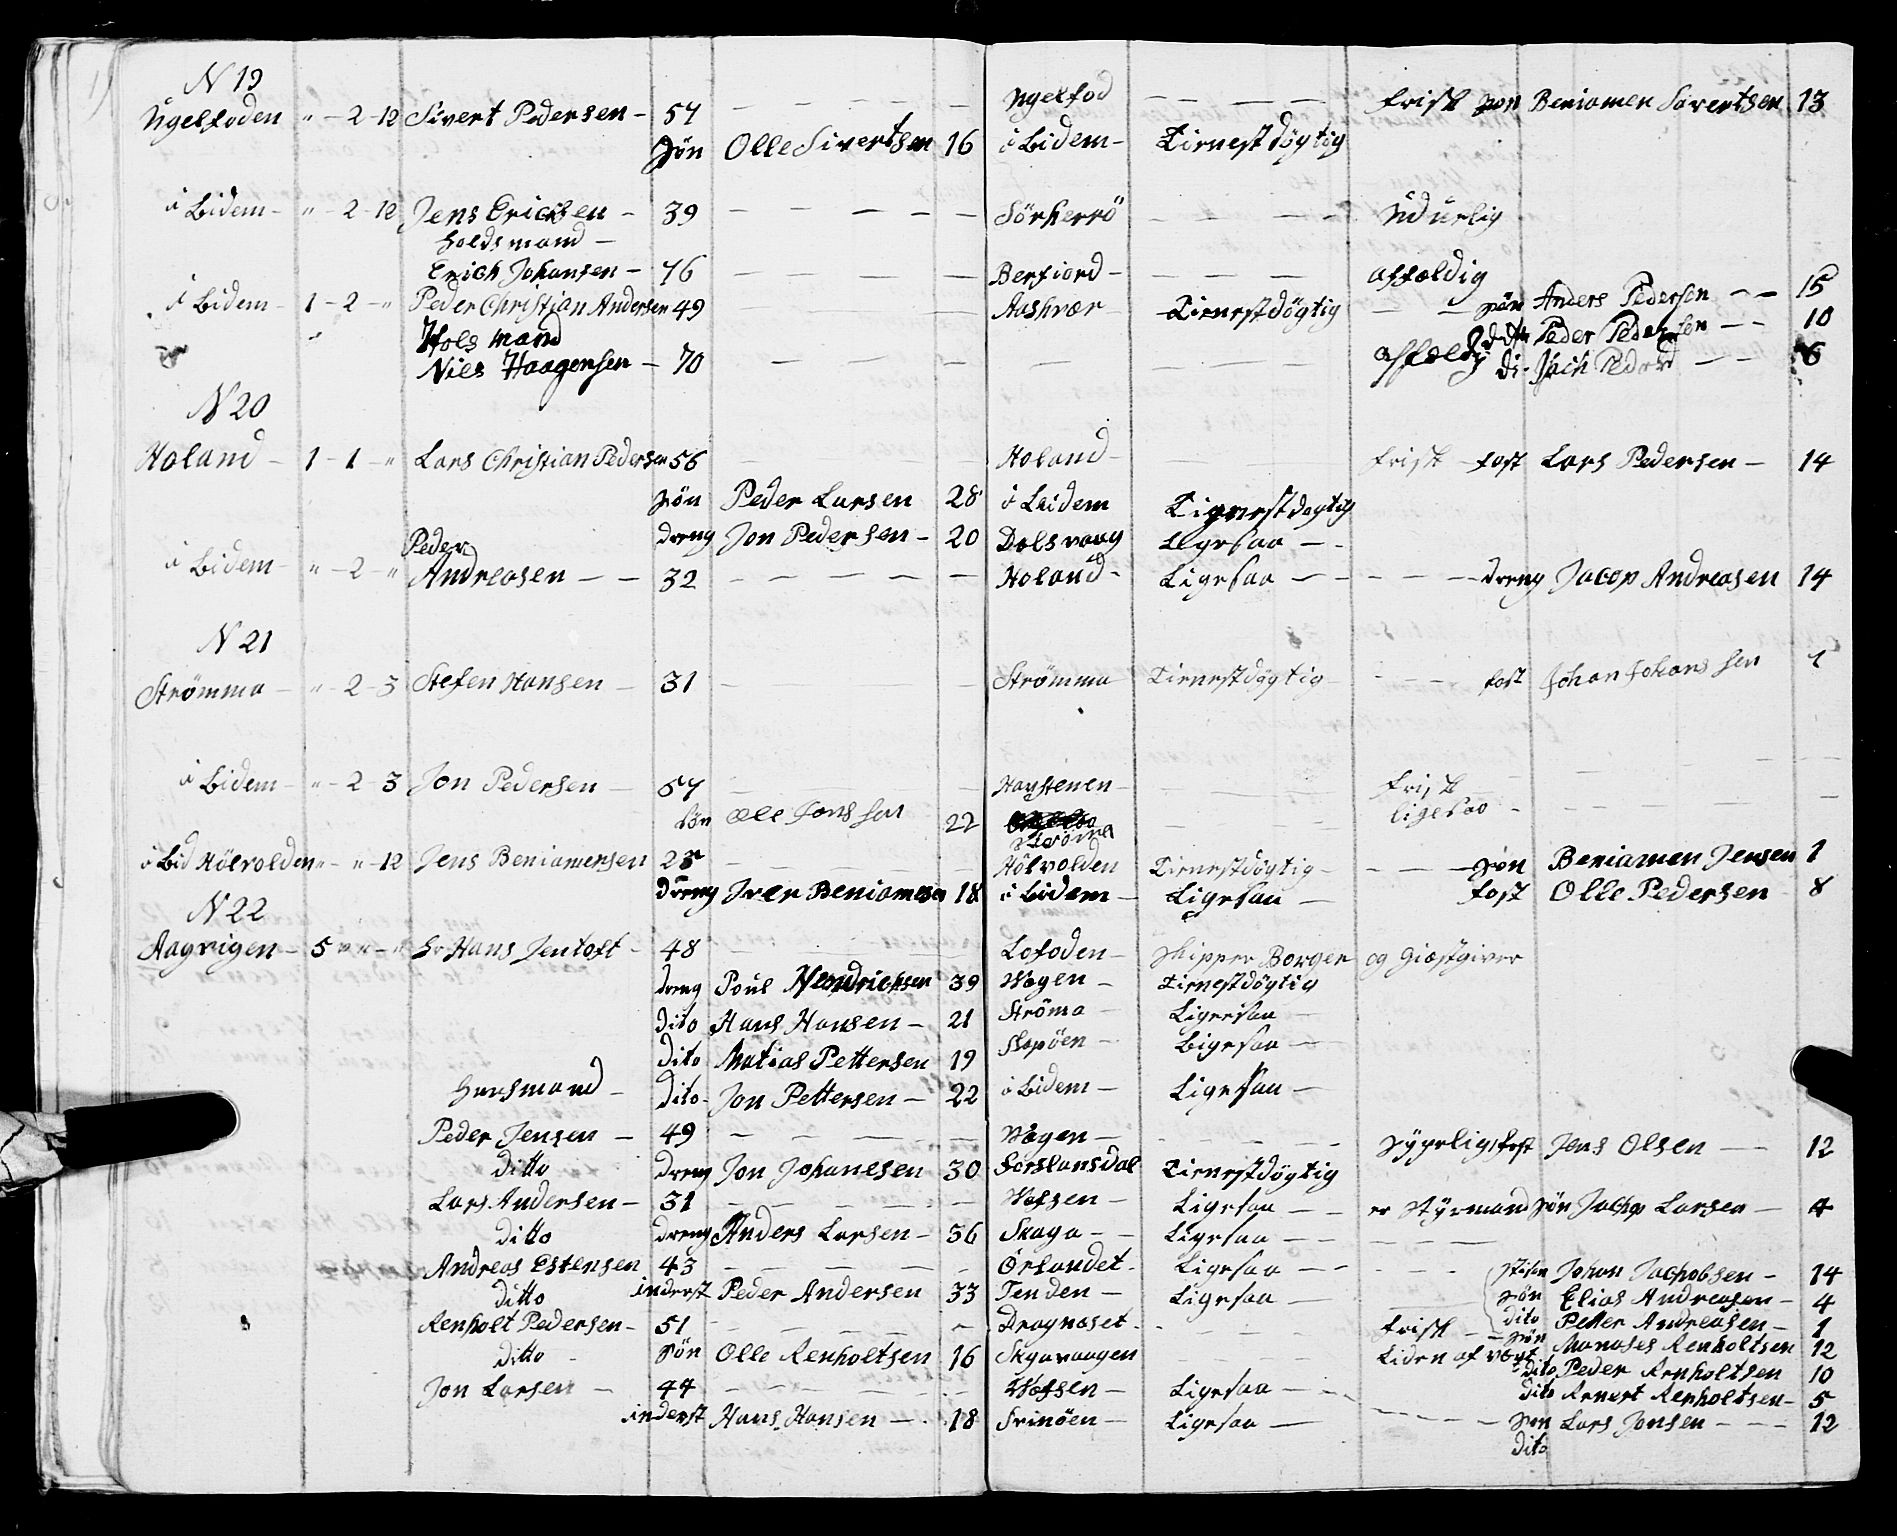 N 19
Ugelfoden " - 2 - 12 Sivert Pedersen - 57 Ugelfod frisk søn Beniamen Sivertsen 13
søn Olle Sivertsen 16 i bidem - Tienestdögtig
i bidem - " - 2 - 12 Jens Ericksen - 39 Sörherrö Udurlig
holdsmand -
Erich Johansen - 76 Berfiord - affældig
i bidem - 1 - 2 - " Peder Christian Andersen 49 Aashvær Tienestdögtig søn Anders Pedersen - 15
Hols mand ditto Peder Pedersen - 10
Niels Haagensen - 70 affældig di- Peder 6
N 20
Holand - 1 - 1 - " Lars Christian Pedersen 56 Holand - frisk fost Lars Pedersen - 14
søn Peder Larsen 28 i bidem Tienestdögtig
dreng Jon Pedersen - 20 Dalsvaag Ligesaa -
Peder
i bidem - " - 2 - " Andreasen - 32 Holand - Ligesaa - dreng Jacop Andreasen 14
N 21
Strömmo - " - 2 - 3 Stefen Hansen - 31 Strömmo Tienestdögtig fost Johan Johanssen 1
i bidem - " - 2 - 3 Jon Pedersen 57 Haystenen - frisk
søn Olle Jonssen 22 Ströme ligesaa -
i bid Hölvolden " - " - 12 Jens Beniamensen 28 Hölvolden Tienestdögtig - søn Beniamen Jensen 1
dreng Iver Beniamensen 18 i bidem - Ligesaa - fost Olle Pedersen 8
N 22
Aagvigen - 5 " " - " Hr Hans Jentoft - 48 Lofoden - Skipper Borger og Giæstgiver
dreng Poul Hendrichsen 39 Vaagen - Tienestdögtig
dito Hans Hansen - 21 Ströma Ligesaa -
dito Matias Pettersen 19 Stopöen - Ligesaa -
Huusmand - dito - Jon Pettersen - 22 i bidem - Ligesaa -
Peder Jensen - 49 Vaagen - sygelig fost Jens Olsen - 12
ditto dreng Jon Johanesen 30 Torslansdal Tienestdögtig
Lars Andersen - 31 Vefsen - Ligesaa - er styrmand søn Jachop Larsen - 4
ditto dreng Anders Larsen - 36 Skaga - Ligesaa -
Andreas Estensen 43 Örlandet - Ligesaa - stisøn Johan Jachobsen - 14
ditto inderst Peder Andersen 33 Tenden - Ligesaa - søn Elias Andreasen - 4
dito Petter Andreasen - 1
Renholt Pedersen - 51 Dragnaset - frisk - søn Manases Renholtsen 12
ditto søn Olle Renholtsen 16 Skyavaagen Liden af vext dito Peder Renholtsen 10
dito Renert Renholtsen - 5
Jon Larsen - 44 Vefsen - Ligesaa -
inderst Hans Hansen - 18 Frinöen - Ligesaa - søn Lars Jonsen - 12
dito